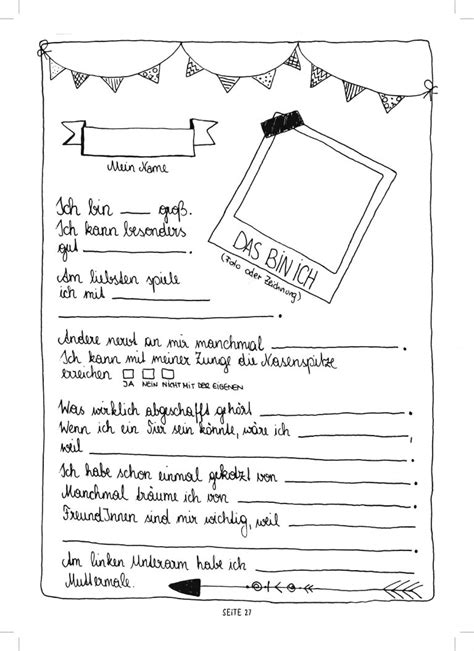 Mein Name
DAS BIN ICH
(Foto oder Zeichnung)
Ich bin ___ groß.
Ich kann besonders
gut ___________.
Am liebsten spiele
ich mit ___________
___________.
Andere nervt an mir manchmal ___________.
Ich kann mit meiner Zunge die Nasenspitze
erreichen □ □ □
JA NEIN NICHT MIT DER EIGENEN
Was wirklich abgeschafft gehört ___________.
Wenn ich ein Tier sein könnte, wäre ich ___________,
weil ___________.
Ich habe schon einmal gekotzt von ___________.
Manchmal träume ich von ___________.
FreundInnen sind mir wichtig, weil ___________
___________.
Am linken Unterarm habe ich ___________
Muttermale.
SEITE 27